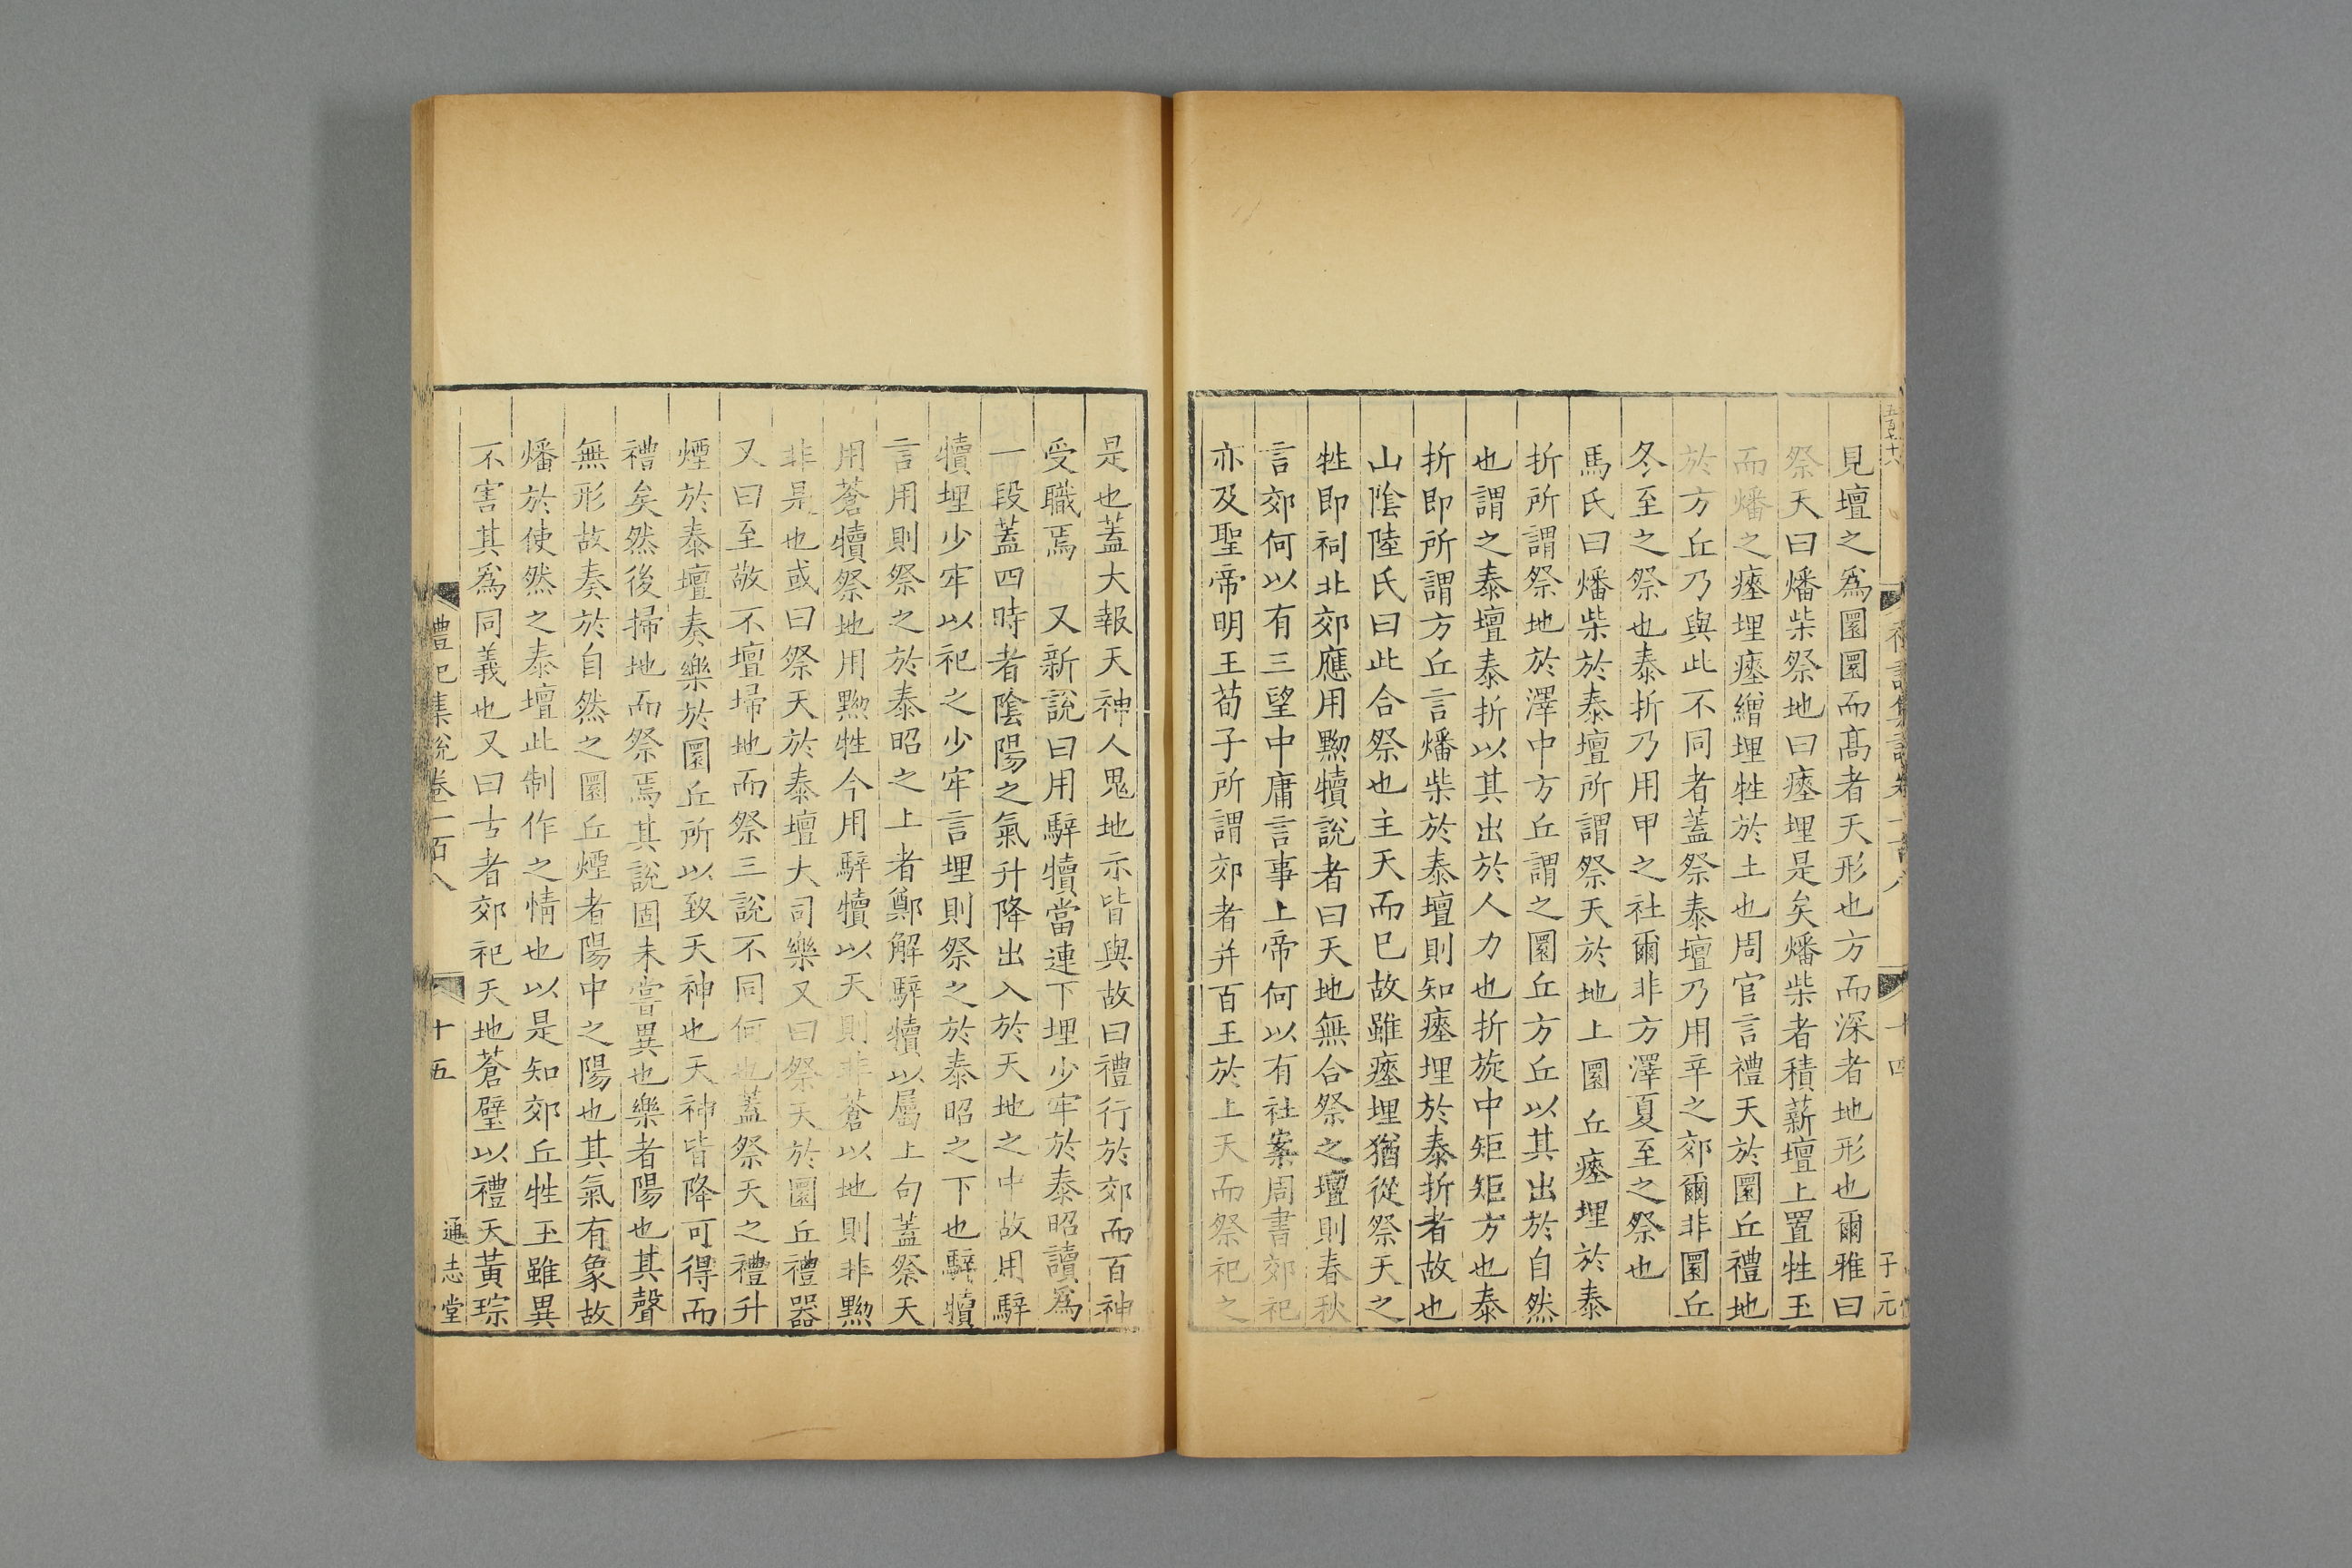 五百七十八
禮記集說卷一百八
十四
子元
見壇之爲圜圜而高者天形也方而深者地形也爾雅曰
祭天曰燔柴祭地曰瘞埋是矣燔柴者積薪壇上置牲玉
而燔之瘞埋瘞繒埋牲於土也周官言禮天於圜丘禮地
於方丘乃與此不同者蓋祭泰壇乃用辛之郊爾非圜丘
冬至之祭也泰折乃用甲之社爾非方澤夏至之祭也
馬氏曰燔柴於泰壇所謂祭天於地上圜丘瘞埋於泰
折所謂祭地於澤中方丘謂之圜丘方丘以其出於自然
也謂之泰壇泰折以其出於人力也折旋中矩矩方也泰
折即所謂方丘言燔柴於泰壇則知瘞埋於泰折者故也
山陰陸氏曰此合祭也主天而巳故雖瘞埋猶從祭天之
牲即祠北郊應用黝犢說者曰天地無合祭之壇則春秋
言郊何以有三望中庸言事上帝何以有社案周書郊祀
亦及聖帝明王荀子所謂郊者并百王於上天而祭祀之
是也蓋大報天神人鬼地示皆與故曰禮行於郊而百神
受職焉　又新說曰用騂犢當連下埋少牢於泰昭讀爲
一段蓋四時者陰陽之氣升降出入於天地之中故用騂
犢埋少牢以祀之少牢言埋則祭之於泰昭之下也騂犢
言用則祭之於泰昭之上者鄭解騂犢以屬上句蓋祭天
用蒼犢祭地用黝牲今用騂犢以天則非蒼以地則非黝
非是也或曰祭天於泰壇大司樂又曰祭天於圜丘禮器
又曰至敬不壇埽地而祭三說不同何也蓋祭天之禮升
煙於泰壇奏樂於圜丘所以致天神也天神皆降可得而
禮矣然後掃地而祭焉其說固未嘗異也樂者陽也其聲
無形故奏於自然之圜丘煙者陽中之陽也其氣有象故
燔於使然之泰壇此制作之情也以是知郊丘牲玉雖異
不害其爲同義也又曰古者郊祀天地蒼璧以禮天黃琮
禮記集說卷一百八
十五
通志堂